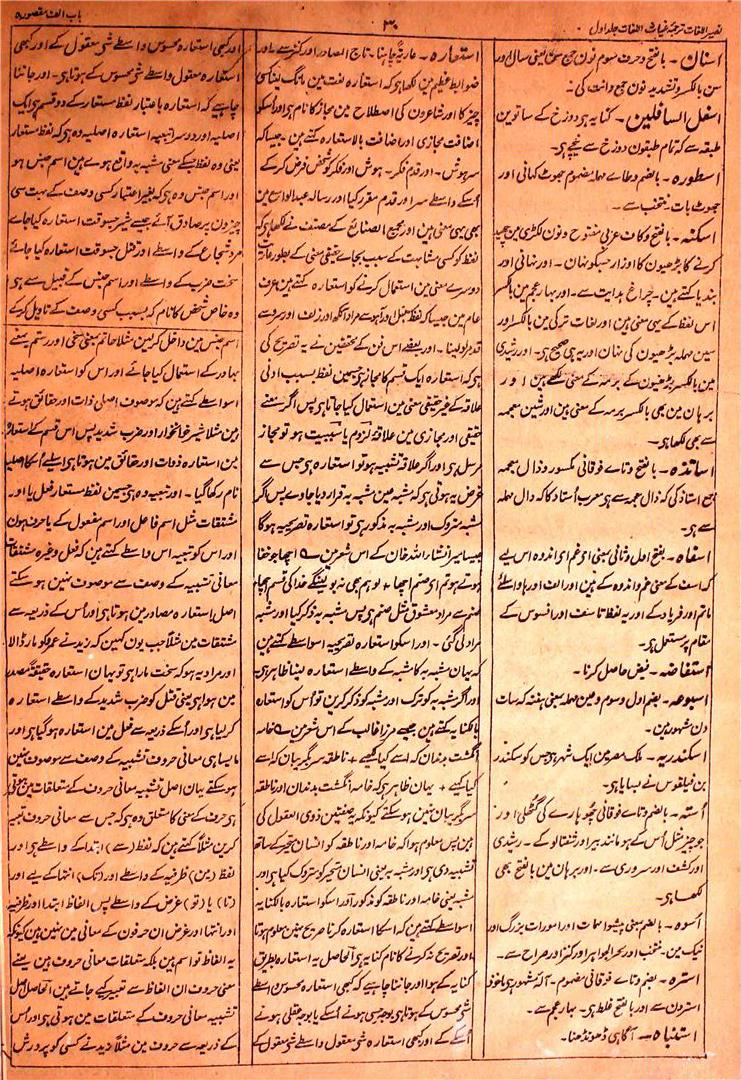 نصیر اللغات ترجمۂ غیاث اللغات جلد اول
۳۰
باب الف مقصورہ
اسنان ۔ بالفتح وحرف سوم نون جمع سن یعنی سال اور
سن بالکسر وتشدید نون جمع دانت کی ۔
اسفل السافلین ۔ کنایہ ہی دوزخ کے ساتوین
طبقہ سے کہ تمام طبقون دوزخ سے نیچے ہی۔
اسطورہ ۔ بالضم وطاے مہملہ مضموم جھوٹ کہانی اور
جھوٹ بات ۔ منتخب سے ۔
اسکنہ ۔ بالفتح وکاف عربی مفتوح ونون لکڑی مین چھید
کرنے کا بڑھیون کا اوزار جسکو نہان ۔ اور نہانی اور
بندیا کہتے ہین ۔ چراغ ہدایت سے ۔ اور بہار عجم مین بالکسر
اس لفظ کے یہی معنی ہین اور لغات ترکی مین بالکسر اور
سین مہملہ بڑھیون کی نہان اور یہ ہی صحیح ہی۔ اور رشیدی
مین بالکسر بڑھیون کے برمہ کے معنی لکھے ہین اور
برہان مین بھی بالکسر برمہ کے معنی ہین اور شین معجمہ
سے بھی لکھا ہی۔
اساتذہ ۔ بالفتح وتاے فوقانی مکسور وذال معجمہ
جمع استاذ کی کہ ذال معجمہ سے ہی معرب اُستاد کا کہ دال مہملہ
سے ہی۔
اسفاہ ۔ بفتح اول وثانی بمعنی ای غم ای اندوہ اس لیے
کہ اسف کے معنی غم واندوہ کے ہین اور الف اور ہا واسطے
ماتم اور فریاد کے اور یہ لفظ تاسف اور افسوس کے
مقام پر مستعمل ہی۔
استفاضہ ۔ فیض حاصل کرنا۔
اسبوعہ ۔ بضم اول وسوم وعین مہملہ بمعنی ہفتہ کہ سات
دن مشہور ہین۔
اسکندریہ ۔ ملک مصر مین ایک شہر ہی جس کو سکندر
بن فیلقوس نے بسایا ہی۔
اُستہ ۔ بالضم وتاے فوقانی چھوہارے کی گٹھلی اور
جو چیز مثل اُس کے ہو مانند بیر اور شفتالو کے ۔ رشیدی
اور کشف اور سروری سے ۔ اور برہان مین بالفتح بھی
لکھا ہی۔
اُسوہ ۔ بالضم بمعنی پیشوا مہمات اور امورات بزرگ اور
نیک مین۔ منتخب اور بحرالجواہر اور کنز اور صراح سے ۔
استرہ ۔ بضم وتاے فوقانی مضموم ۔ آلہ مشہور ہی ماخوذ
استردن سے اور بالفتح غلط ہی۔ بہار عجم سے ۔
استنباہ ۔ آگاہی ڈھونڈھنا۔
استعارہ ۔ عاریۃً چاہنا۔ تاج المصادر اور کنز سے ۔ اور
ضوابط عظیم مین لکھا ہی کہ استعارہ لغت مین مانگ لینا کسی
چیز کا اور شاعرون کی اصطلاح مین مجاز کا نام ہی اور اُسکو
اضافت مجازی اور اضافت بالاستعارہ کہتے ہین۔ جیسا کہ
سر ہوش ۔ اور قدم فکر ۔ ہوش اور فکر کو شخص فرض کر کے
اُسکے واسطے سر اور قدم مقرر کیا اور رسالہ عبدالواسع مین
بھی یہی معنی ہین اور مجمع الصنائع کے مصنف نے لکھا ہی کہ
لفظ کو کسی مشابہت کے سبب بجاے حقیقی معنی کے بطور عاریت
دوسرے معنی مین استعمال کرنے کو استعارہ کہتے ہین عرف
عام مین جیسا کہ لفظ سنبل و نرگس و سرو سے مراد آنکھ اور زلف اور
قد مراد لینا۔ اور بعضے اس فن کے محققین نے یہ تصریح کی
ہی کہ استعارہ ایک قسم کا مجاز ہی جسمین لفظ بسبب ادنیٰ
علاقہ کے غیر حقیقی معنی مین استعمال کیا جاتا ہی پس اگر معنے
حقیقی اور مجازی مین علاقۂ لزوم یا سببیت ہو تو مجاز
مرسل ہی اور اگر علاقہ تشبیہ ہو تو استعارہ ہی جس سے
غرض یہ ہوتی ہی کہ مشبہ عین مشبہ بہ قرار دیا جاوے پس اگر
مشبہ متروک اور مشبہ بہ مذکور ہی تو استعارہ تصریحیہ ہوگا
جیسا میر انشاء اللہ خان کے اس شعر مین ؎ اچھا جو خفا
ہوتے ہو تم ای صنم اچھا + لو ہم بھی نہ بولینگے خدا کی قسم اچھا
صنم سے مراد معشوق مثل صنم ہی پس مشبہ بہ ذکر کیا اور مشبہ
مراد لی گئی۔ اور اسکو استعارہ تصریحیہ اسواسطے کہتے ہین
کہ یہان مشبہ بہ کا مشبہ کے واسطے استعارہ لینا ظاہر ہی
اور اگر مشبہ بہ کو ترک اور مشبہ کو ذکر کرین تو اُس کو استعارہ
بالکنایہ کہتے ہین جیسے مرزا غالب کے اس شعر مین ؎ خامہ
انگشت بدندان کہ اسے کیا لکھیے + ناطقہ سر بگریبان کہ اسے
کیا کہیے + یہان ظاہر ہی کہ خامہ انگشت بدندان اور ناطقہ
سر بگریبان نہین ہوسکتے کیونکہ یہ صفتین ذوی العقول کی
ہین پس معلوم ہوا کہ خامہ اور ناطقہ کو انسان متحیر کے ساتھ
تشبیہ دی ہی اور مشبہ بہ یعنی انسان متحیر کو متروک کیا ہی اور
مشبہ یعنی خامہ اور ناطقہ کو مذکور اور اسکو استعارہ بالکنایہ
اسواسطے کہتے ہین کہ اسکا استعارہ کرنا صریح نہین معلوم ہوتا
اور تصریح نہ کرنے کا نام کنایہ ہی الحاصل یہ استعارہ بطریق
کنایہ کے ہوا اور جاننا چاہیے کہ کبھی استعارہ محسوس واسطے
شی محسوس کے ہوتا ہی بوجہ حسی ہونے اُسکے یا بوجہ عقلی ہونے
اُسکے کے اور کبھی استعارہ شی معقول واسطے شی معقول کے
اور کبھی استعارہ محسوس واسطے شی معقول کے اور کبھی
استعارہ معقول واسطے شی محسوس کے ہوتا ہی۔ اور جاننا
چاہیے کہ استعارہ باعتبار لفظ مستعار کے دو قسم ہی ایک
اصلیہ اور دوسرا تبعیہ استعارہ اصلیہ وہ ہی کہ لفظ مستعار
یعنی وہ لفظ جسکے معنی مشبہ بہ واقع ہوے ہین اسم جنس ہو
اور اسم جنس وہ ہی کہ بغیر اعتبار کسی وصف کے بہت سی
چیزون پر صادق آئے جیسے شیر جسوقت استعارہ کیا جاے
مرد شجاع کے واسطے اور قتل جسوقت استعارہ کیا جائے
سخت ضرب کے واسطے اور اسم جنس کے قبیل سے ہی
وہ خاص شخص کا نام کہ بسبب کسی وصف کے تاویل کرکے
اسم جنس مین داخل کرلین مثلا حاتم بمعنی سخی اور رستم بمعنے
بہادر کے استعمال کیا جائے اور اس کو استعارہ اصلیہ
اسواسطے کہتے ہین کہ موصوف اصلی ذات اور حقائق ہوتے
ہین مثلا شیر خونخوار اور ضرب شدید پس اس قسم کے استعارہ
مین استعارہ ذوات اور حقائق مین ہوتا ہی اسلیے اُسکا اصلیہ
نام رکھا گیا۔ اور تبعیہ وہ ہی جسمین لفظ مستعار فعل یا اور
مشتقات مثل اسم فاعل اور اسم مفعول کے یا حرف ہون
اور اس کو تبعیہ اس واسطے کہتے ہین کہ فعل وغیرہ مشتقات
معانی تشبیہ کے وصف سے موصوف نہین ہو سکتے
اصل استعارہ مصادر مین ہوتا ہی اور اُس کے ذریعہ سے
مشتقات مین مثلاً جب یون کہین کہ زید نے عمرو کو مار ڈالا
اور مراد یہ ہو کہ سخت مارا ہی تو یہان استعارہ حقیقۃً مصدر
مین ہوا ہی یعنی قتل کو ضرب شدید کے واسطے استعارہ
کر لیا ہی اور اُسکے ذریعہ سے فعل مین استعارہ ہوگیا ہی اور
ایسا ہی معانی حروف تشبیہ کے وصف سے موصوف نہین
ہوسکتے یہان اصل تشبیہ معانی حروف کے متعلقات مین ہوتی
ہی حرف کے معنی کا متعلق وہ ہی کہ جس سے معانی حروف تعبیر
کرین مثلاً کہتے ہین کہ لفظ (سے) ابتدا کے واسطے ہی اور
لفظ (مین) ظرفیہ کے واسطے اور (تک) انتہا کے لیے اور
(تا) یا (تو) غرض کے واسطے پس الفاظ ابتدا اور ظرفیہ
اور انتہا اور غرض ان حرفون کے معانی مین نہین کیونکہ
یہ الفاظ تو اسم ہین بلکہ متعلقات معانی حروف ہین یعنے
معنی حروف ان الفاظ سے تعبیر کیے جاتے ہین الحاصل اصل
تشبیہ معانی حروف کے متعلقات مین ہوتی ہی اور اُس
کے ذریعہ سے حروف مین مثلاً زید نے کسی کو پرورش